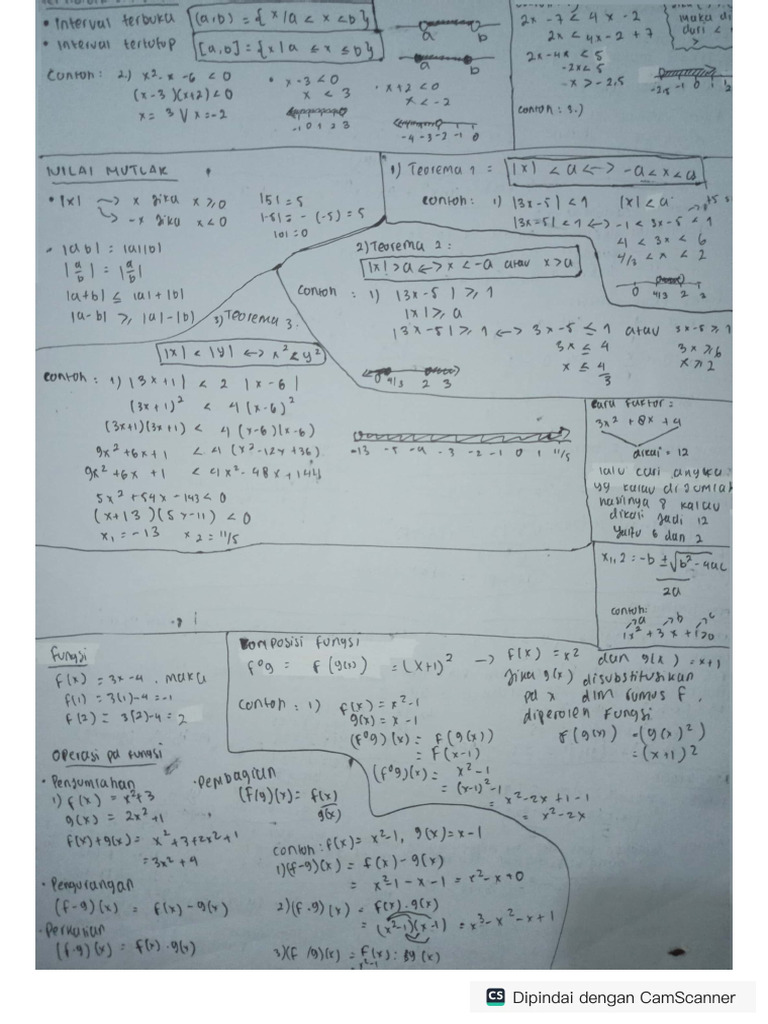 • Interval terbuka (a,b) = {x/a < x < b}
• Interval tertutup [a,b] = {x|a ≤ x ≤ b}
a b
a b
Contoh : 2) x² - x - 6 < 0
(x-3)(x+2) < 0
x = 3 V x = -2
• x - 3 < 0
x < 3
-1 0 1 2 3
• x + 2 < 0
x < -2
-4 -3 -2 -1 0
2x - 7 < 4x - 2
2x < 4x - 2 + 7
2x - 4x < 5
-2x < 5
-x > -2,5
maka di
dari <
-2,5 -1 0 1 2
contoh : 3.)
NILAI MUTLAK
• |x| → x jika x ≥ 0
→ -x jika x < 0
|5| = 5
|-5| = -(-5) = 5
|0| = 0
• |ab| = |a||b|
|a/b| = |a/b|
|a+b| ≤ |a| + |b|
|a-b| ≥ |a| - |b|
1) Teorema 1 = |x| < a <-> -a < x < a
contoh : 1) |3x-5| < 1 |x| < a
|3x-5| < 1 <-> -1 < 3x-5 < 1
4 < 3x < 6
4/3 < x < 2
0 4/3 2 3
2) Teorema 2 :
|x| > a <-> x < -a atau x > a
Contoh : 1) |3x-5| ≥ 1
|x| ≥ a
|3x-5| ≥ 1 <-> 3x-5 ≤ 1 atau 3x-5 ≥ 1
3x ≤ 4 3x ≥ 6
x ≤ 4/3 x ≥ 2
0 4/3 2 3
3) Teorema 3.
|x| < |y| <-> x² < y²
contoh : 1) |3x+1| < 2 |x-6|
(3x+1)² < 4(x-6)²
(3x+1)(3x+1) < 4(x-6)(x-6)
9x²+6x+1 < 4(x²-12x+36)
9x²+6x+1 < 4x²-48x+144
5x²+54x-143 < 0
(x+13)(5x-11) < 0
x₁ = -13 x₂ = 11/5
-13 -5 -4 -3 -2 -1 0 1 11/5
Cara faktor :
3x² + 8x + 4
dikali = 12
lalu cari angka
yg kalau dijumlah
hasilnya 8 kalau
dikali jadi 12
yaitu 6 dan 2
x₁,2 = -b ± √b²-4ac
2a
contoh:
a b c
1x² + 3x + 1 > 0
Fungsi
f(x) = 3x-4 . maka
f(1) = 3(1)-4 = -1
f(2) = 3(2)-4 = 2
Komposisi fungsi
f°g = f(g(x)) = (x+1)² → f(x) = x² dan g(x) = x+1
jika g(x) disubstitusikan
pd x dlm rumus f,
diperoleh fungsi
f(g(x)) = (g(x)²)
= (x+1)²
contoh : 1) f(x) = x²-1
g(x) = x-1
(f°g)(x) = f(g(x))
= f(x-1)
(f°g)(x) = x²-1
= (x-1)²-1
= x²-2x+1-1
= x²-2x
Operasi pd fungsi
• Penjumlahan
1) f(x) = x²+3
g(x) = 2x²+1
f(x)+g(x) = x²+3+2x²+1
= 3x²+4
• Pengurangan
(f-g)(x) = f(x)-g(x)
• Perkalian
(f.g)(x) = f(x).g(x)
• Pembagian
(f/g)(x) = f(x)
g(x)
contoh : f(x) = x²-1, g(x) = x-1
1) (f-g)(x) = f(x)-g(x)
= x²-1-x-1 = x²-x+0
2) (f.g)(x) = f(x).g(x)
= (x²-1)(x-1) = x³-x²-x+1
3) (f/g)(x) = f(x) : g(x)
x²-1
CS Dipindai dengan CamScanner